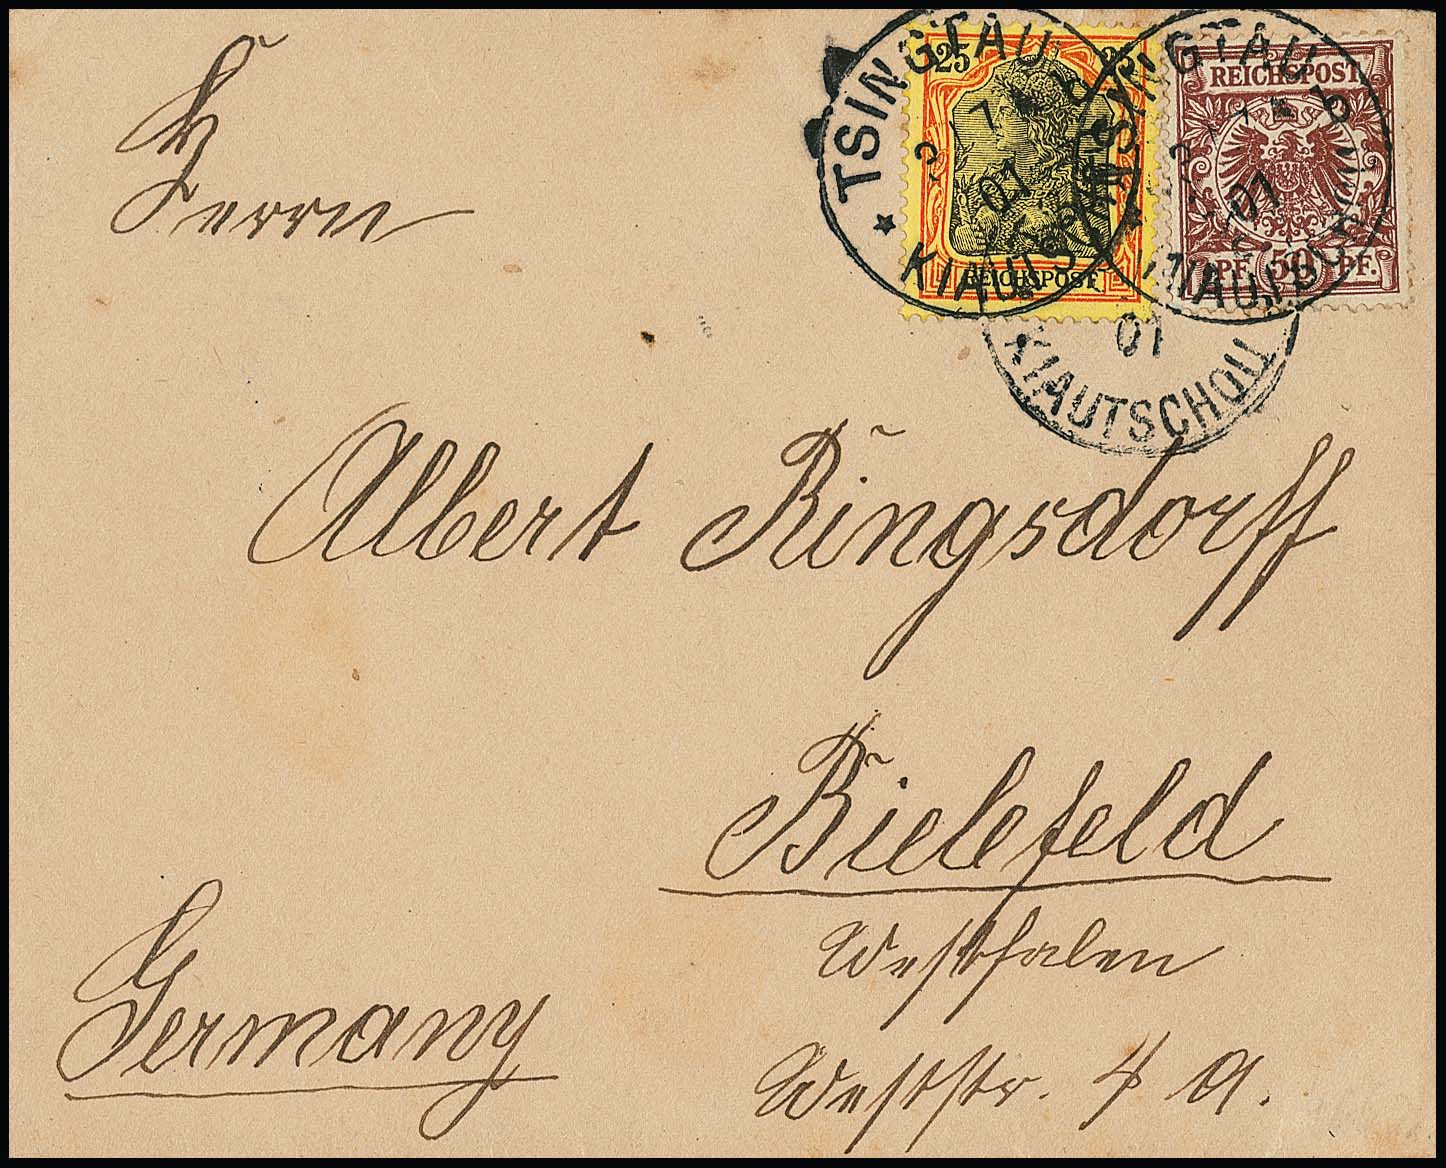 25 25
REICHSPOST
REICHSPOST
PF. 50 PF.
TSINGTAU
KIAUTSCHOU
01
TSINGTAU
KIAUTSCHOU
01
01
KIAUTSCHOU
Herrn
Albert Ringsdorff
Bielefeld
Westfalen
Weststr. 4 a.
Germany